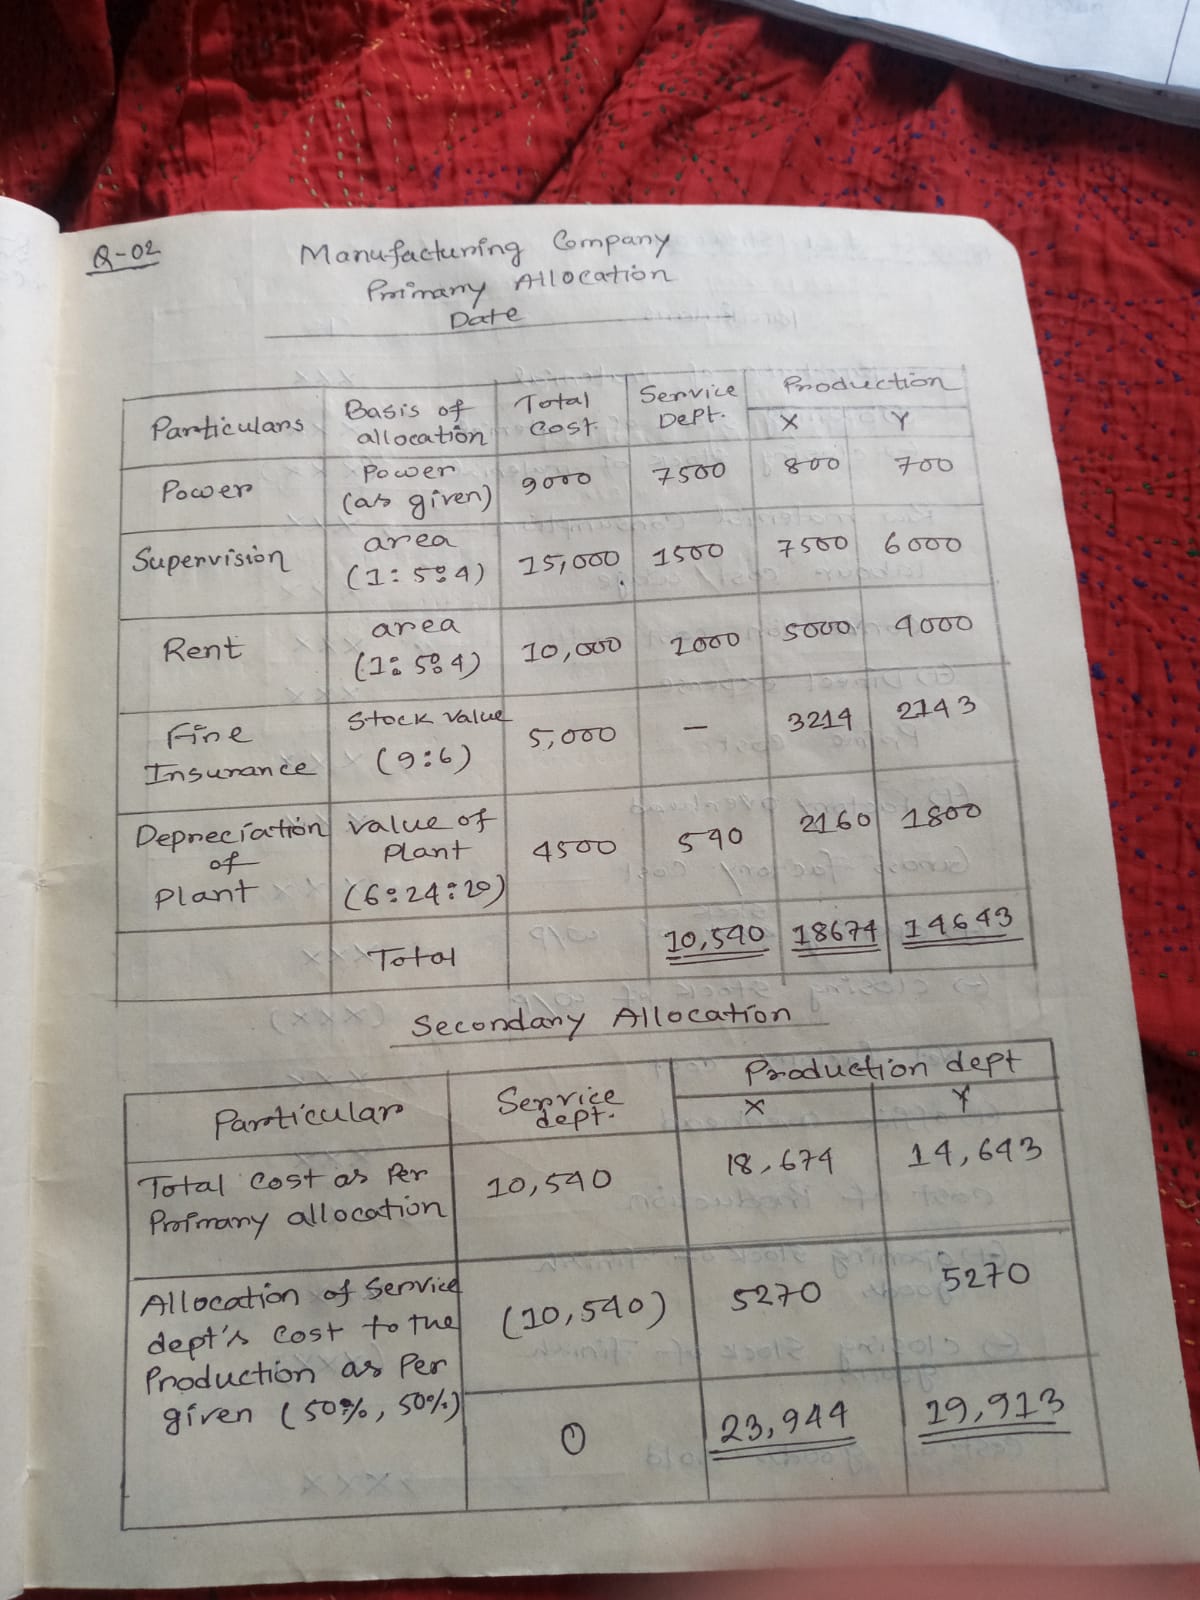 Q-02
Manufacturing Company
Primary Allocation
Date
Particulars Basis of allocation Total Cost Service Dept. Production
X Y
Power Power (as given) 9000 7500 800 700
Supervision area (1:5:4) 15,000 1500 7500 6000
Rent area (1:5:4) 10,000 1000 5000 4000
Fire Insurance Stock value (9:6) 5,000 — 3214 2143
Depreciation of Plant value of Plant (6:24:20) 4500 540 2160 1800
Total 10,540 18674 14643
Secondary Allocation
Particular Service dept. Production dept
X Y
Total Cost as Per Primary allocation 10,540 18,674 14,643
Allocation of Service dept's Cost to the Production as Per given (50%, 50%) (10,540) 5270 5270
0 23,944 19,913